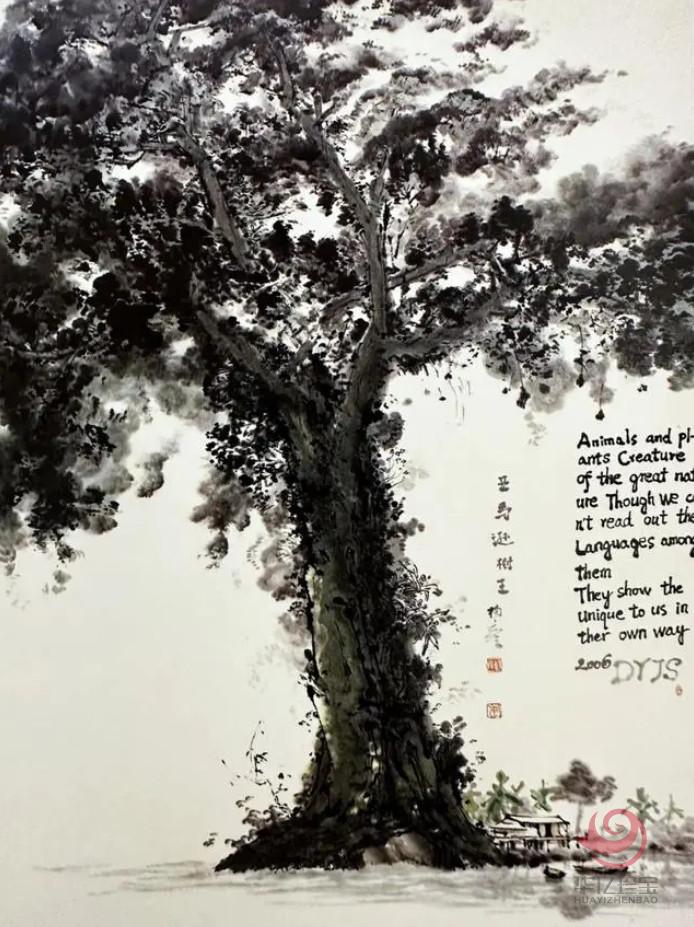 亚马逊樹王
Animals and pl-
ants Creature
of the great nat
ure Though we c
n't read out the
Languages among
them
They show the
unique to us in
ther own way
2006 DYJS
华亿珍宝
HUAYIZHENBAO